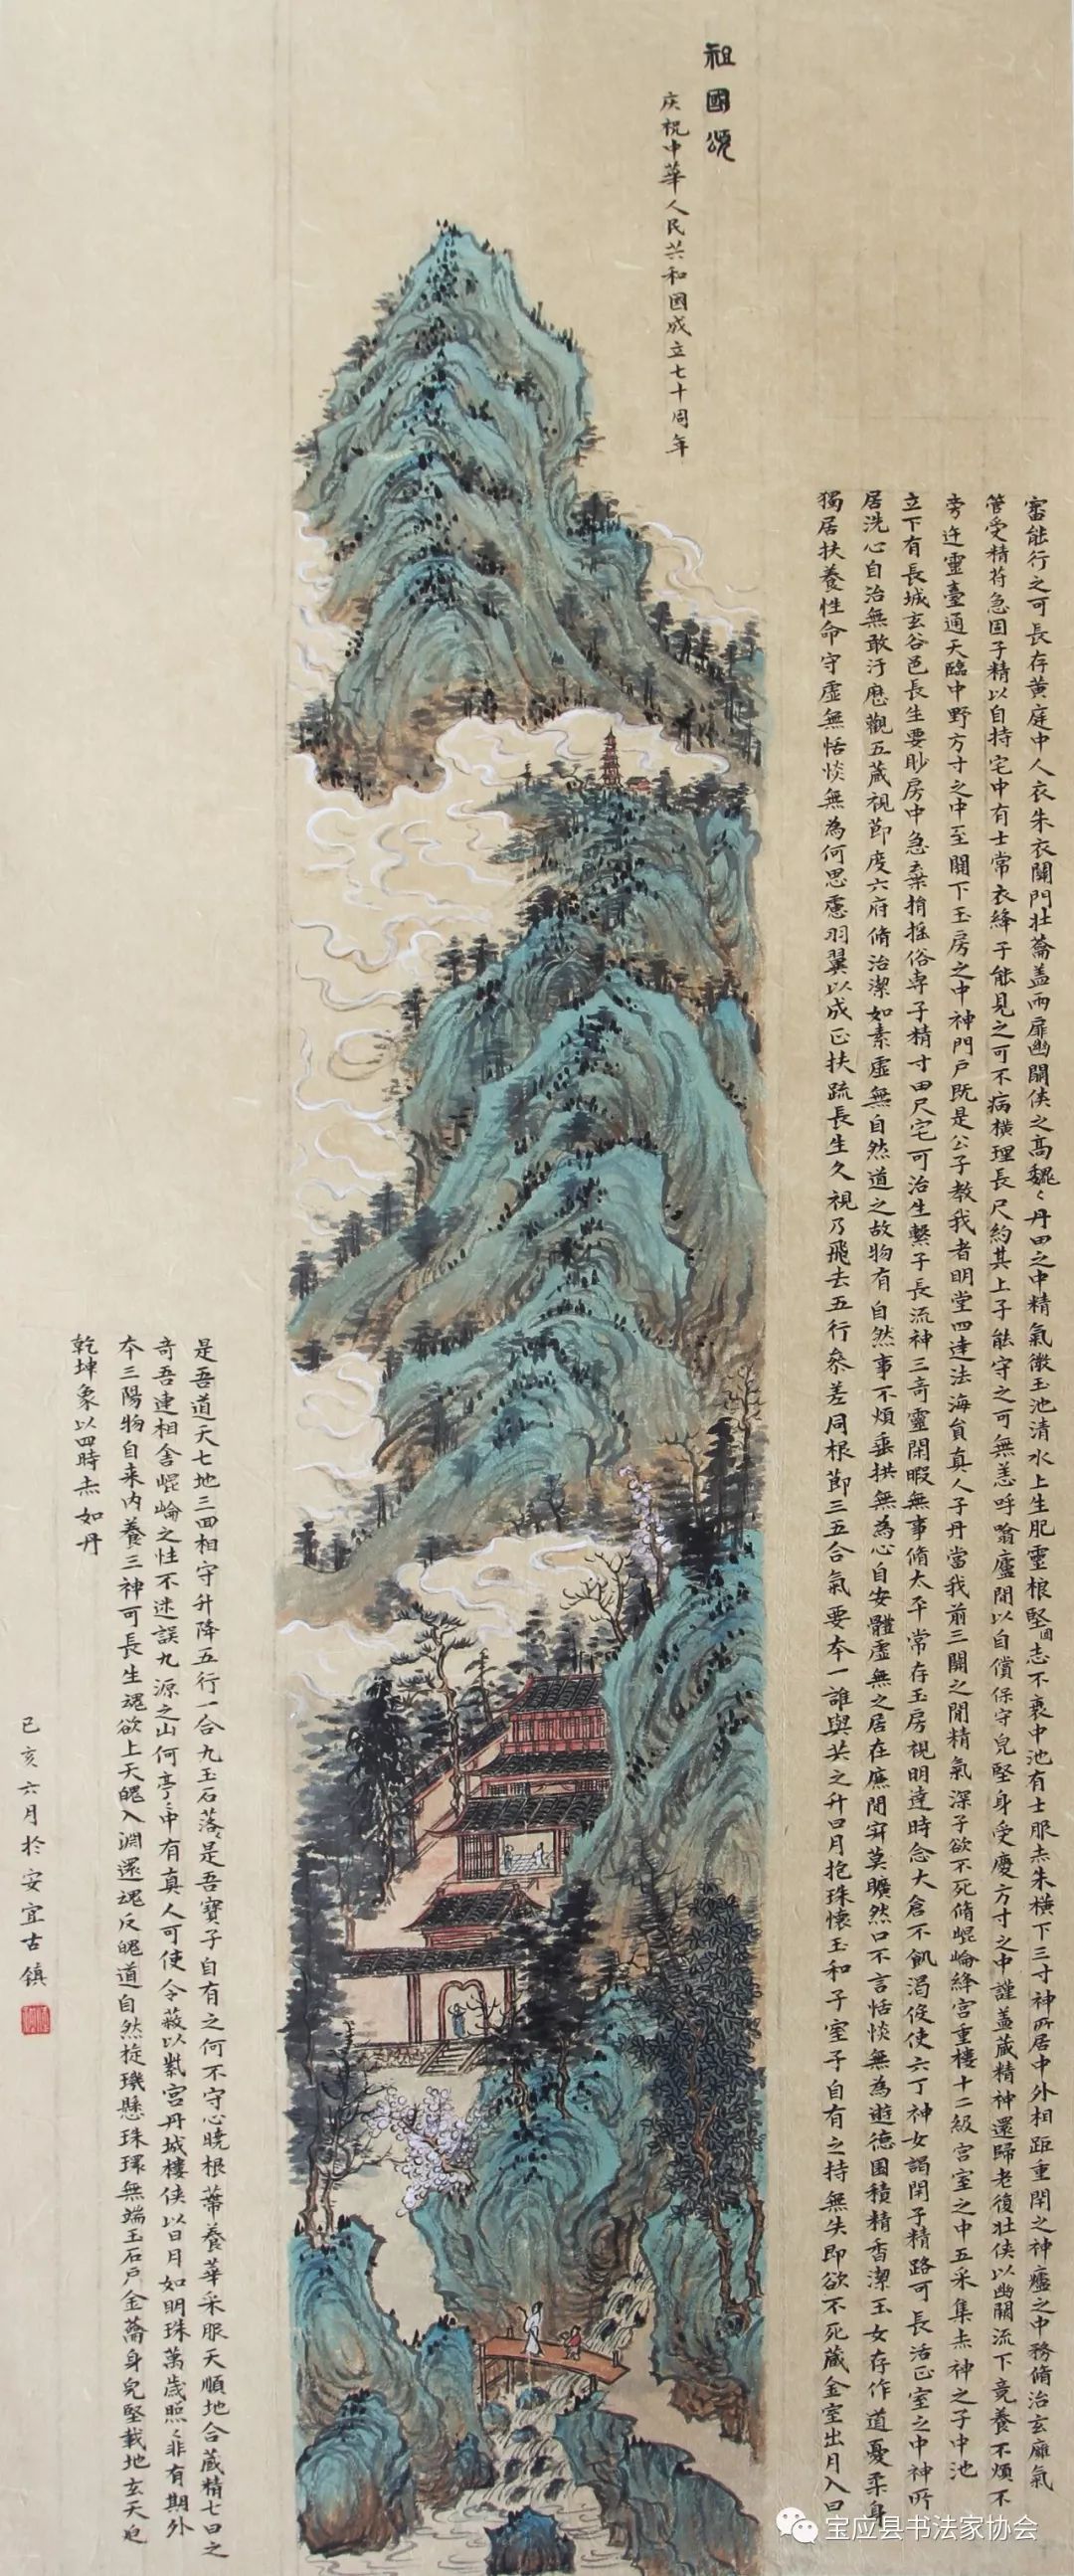 祖國頌
庆祝中華人民共和國成立七十周年
審能行之可長存黄庭中人衣朱衣關門壮籥盖兩扉幽闕侠之高魏〻丹田之中精氣微玉池清水上生肥靈根堅固志不衰中池有士服赤朱横下三寸神所居中外相距重閉之神廬之中務脩治玄廱氣
管受精符急固子精以自持宅中有士常衣絳子能見之可不病横理長尺約其上子能守之可無恙呼噏廬間以自償保守皃堅身受慶方寸之中謹盖蔵精神還歸老復壮侠以幽闕流下竟養不煩不
旁迮靈臺通天臨中野方寸之中至關下玉房之中神門户既是公子教我者明堂四達法海負真人子丹當我前三關之間精氣深子欲不死脩崐崘絳宫重樓十二級宫室之中五采集赤神之子中池
立下有長城玄谷邑長生要眇房中急棄捐揺俗専子精寸田尺宅可治生繫子長流神三奇靈閑暇無事脩太平常存玉房視明達時念大倉不飢渴伇使六丁神女謁閉子精路可長活正室之中神所
居洗心自治無敢汙歴觀五蔵視節度六府脩治潔如素虚無自然道之故物有自然事不煩垂拱無為心自安體虚無之居在廉間寂莫曠然口不言恬惔無為遊德園積精香潔玉女存作道憂柔身
獨居扶養性命守虚無恬惔無為何思慮羽翼以成正扶疏長生久視乃飛去五行参差同根節三五合氣要本一誰與共之升日月抱珠懷玉和子室子自有之持無失即欲不死蔵金室出月入日
是吾道天七地三回相守升降五行一合九玉石落〻是吾寶子自有之何不守心曉根蒂養華采服天順地合蔵精七日之
奇吾連相舍崐崘之性不迷誤九源之山何亭〻中有真人可使令蔽以紫宫丹城樓侠以日月如明珠萬歳照〻非有期外
本三陽物自来内養三神可長生魂欲上天魄入淵還魂反魄道自然㫌璣懸珠環無端玉石户金籥身皃堅載地玄天迫
乾坤象以四時赤如丹
己亥六月於安宜古鎮
宝应县书法家协会